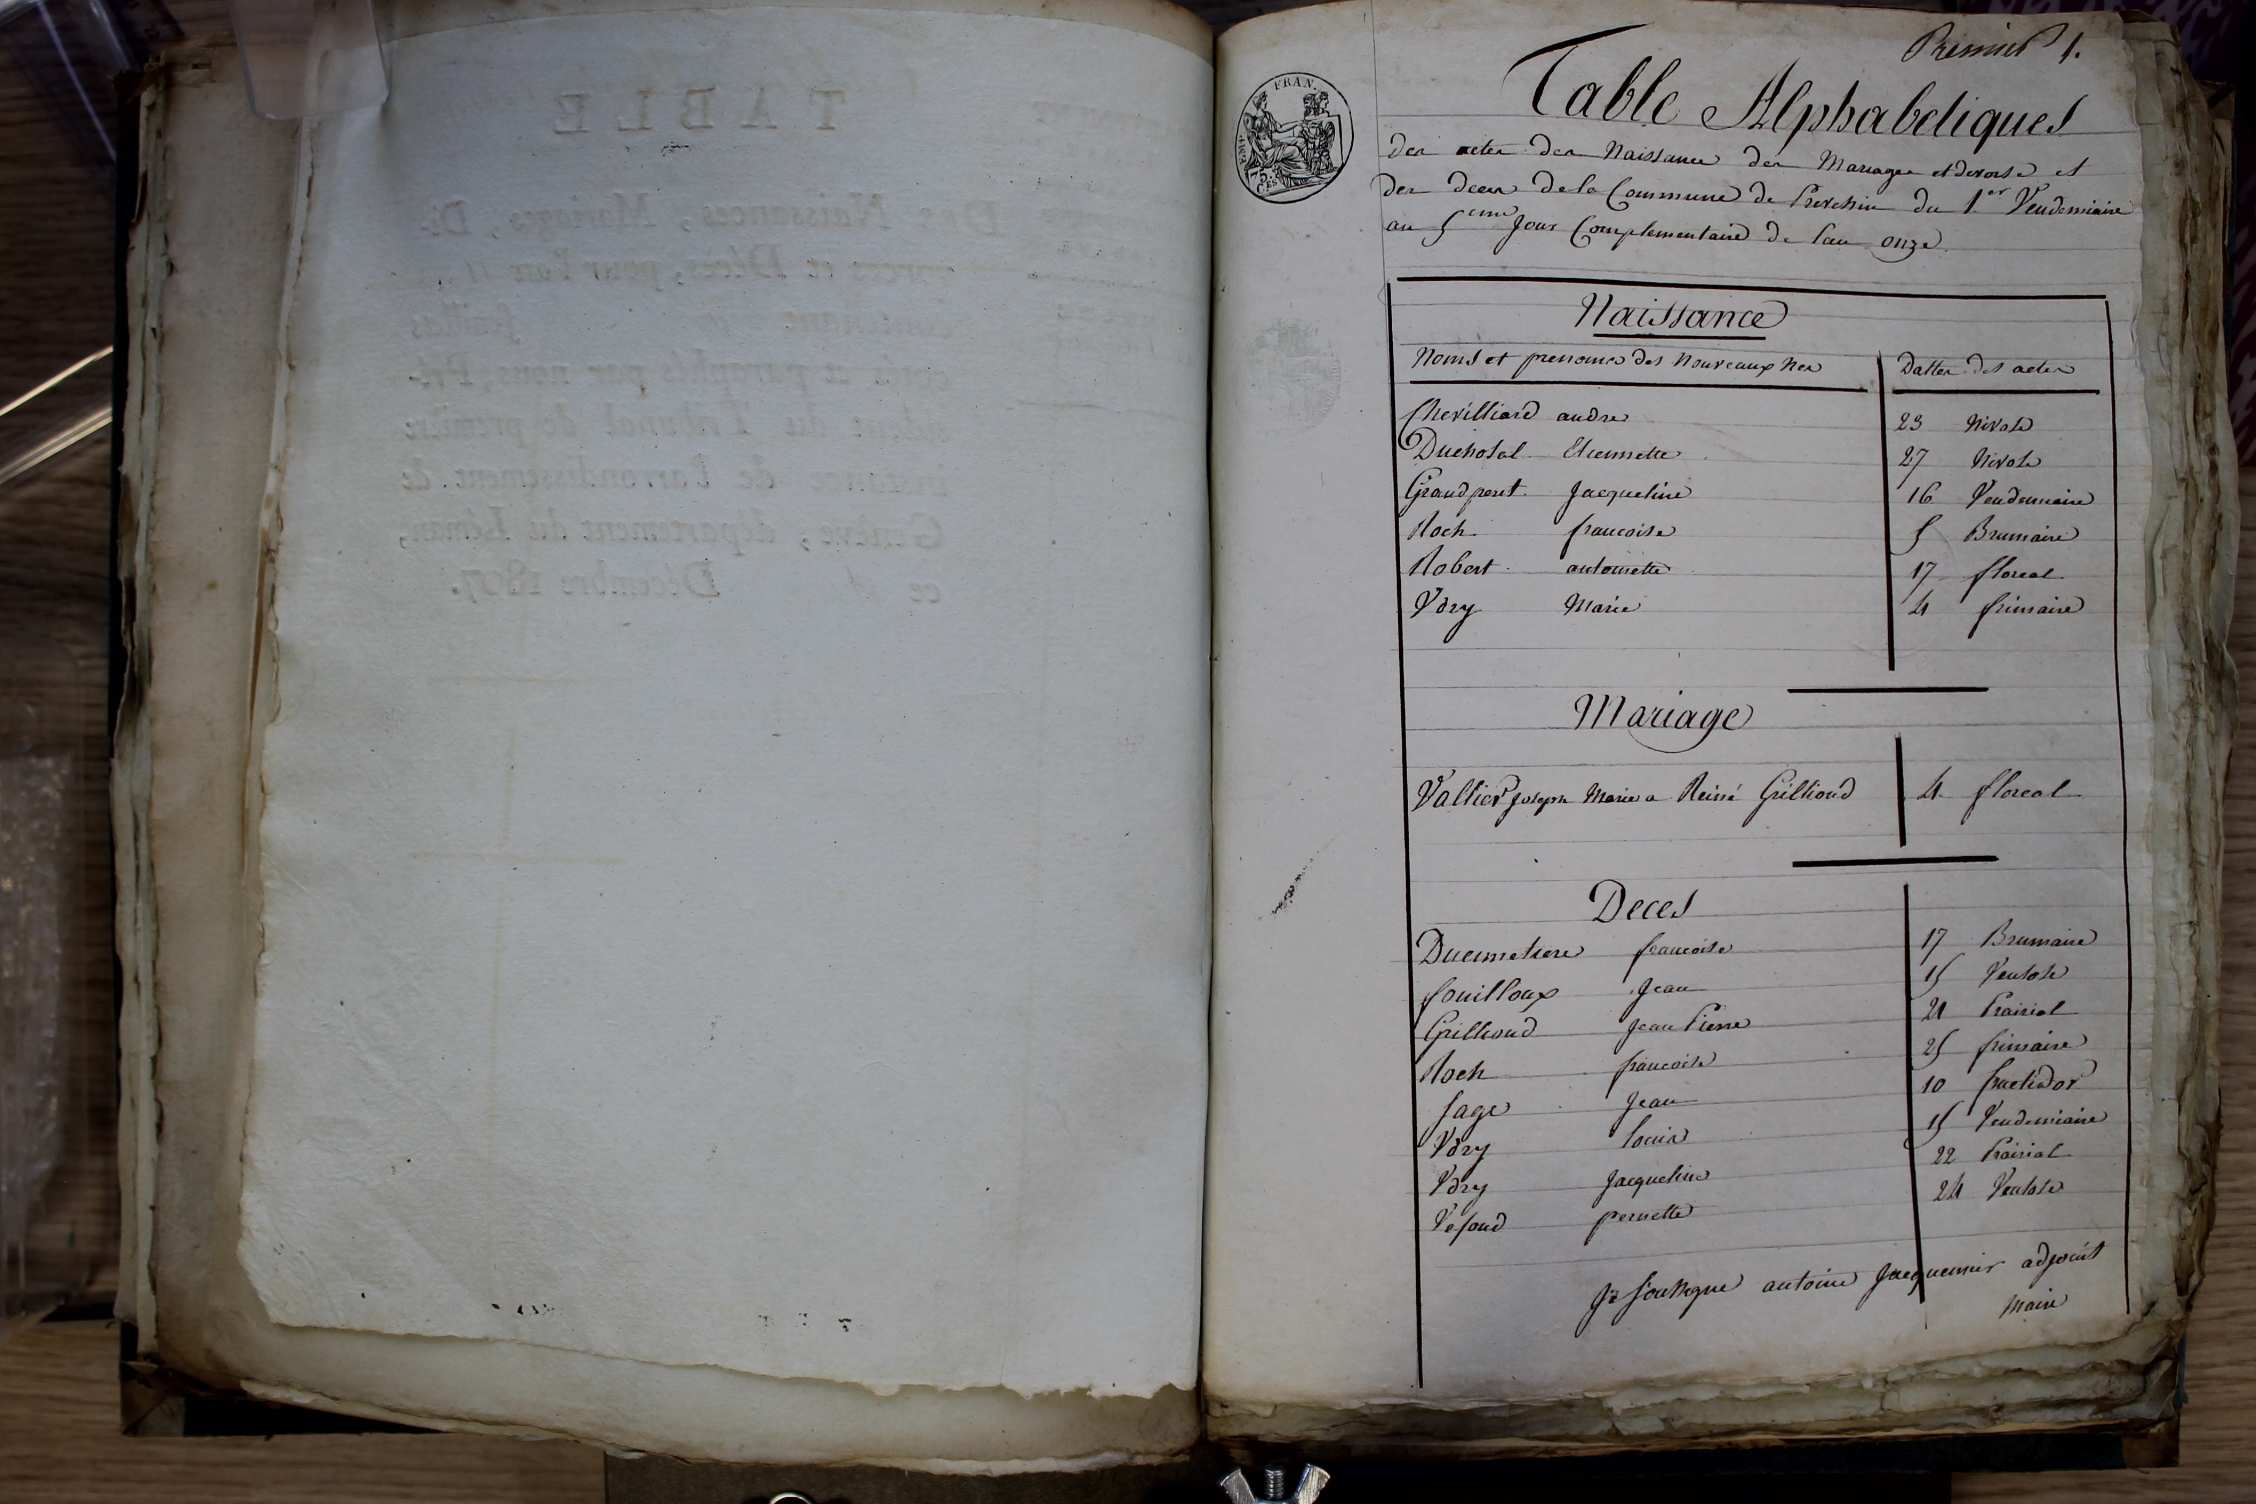 TABLE
Des Naissances, Mariages, Di-
vorces et Décès, pour l'an 11
feuilles
cotés et paraphés par nous, Pré-
sident du Tribunal de première
instance de l'arrondissement de
Genève, département du Léman,
ce Décembre 1807.
Premier 1.
FRAN.
EMP.
75.
CES
Table Alphabetiques
des actes des Naissance des Mariages et divorse et
des deces de la Commune de Prevesin du 1er Vendemiaire
au 5eme Jour Complementaire de l'an onze
Naissance
Noms et prenoms des Nouveaux Nes Dattes des actes
Chevilliard andre 23 Nivose
Duchosal Etiennette 27 Nivose
Grandperet Jacqueline 16 Vendemiaire
Roch francoise 5 Brumaire
Robert antoinette 17 floreal
Vdry Marie 4 frimaire
Mariage
Vallier Joseph Marie a Reine Grillioud 4 floreal
Deces
Ducimetiere francoise 17 Brumaire
fouilloux Jean 15 Ventose
Grillioud Jean Pierre 21 Prairial
Roch francoise 25 frimaire
Sage Jean 10 fructidor
Vdry louis 15 Vendemiaire
Vdry Jacqueline 22 Prairial
pernette 24 Ventose
antoine Jacquemier adjoint
Maire